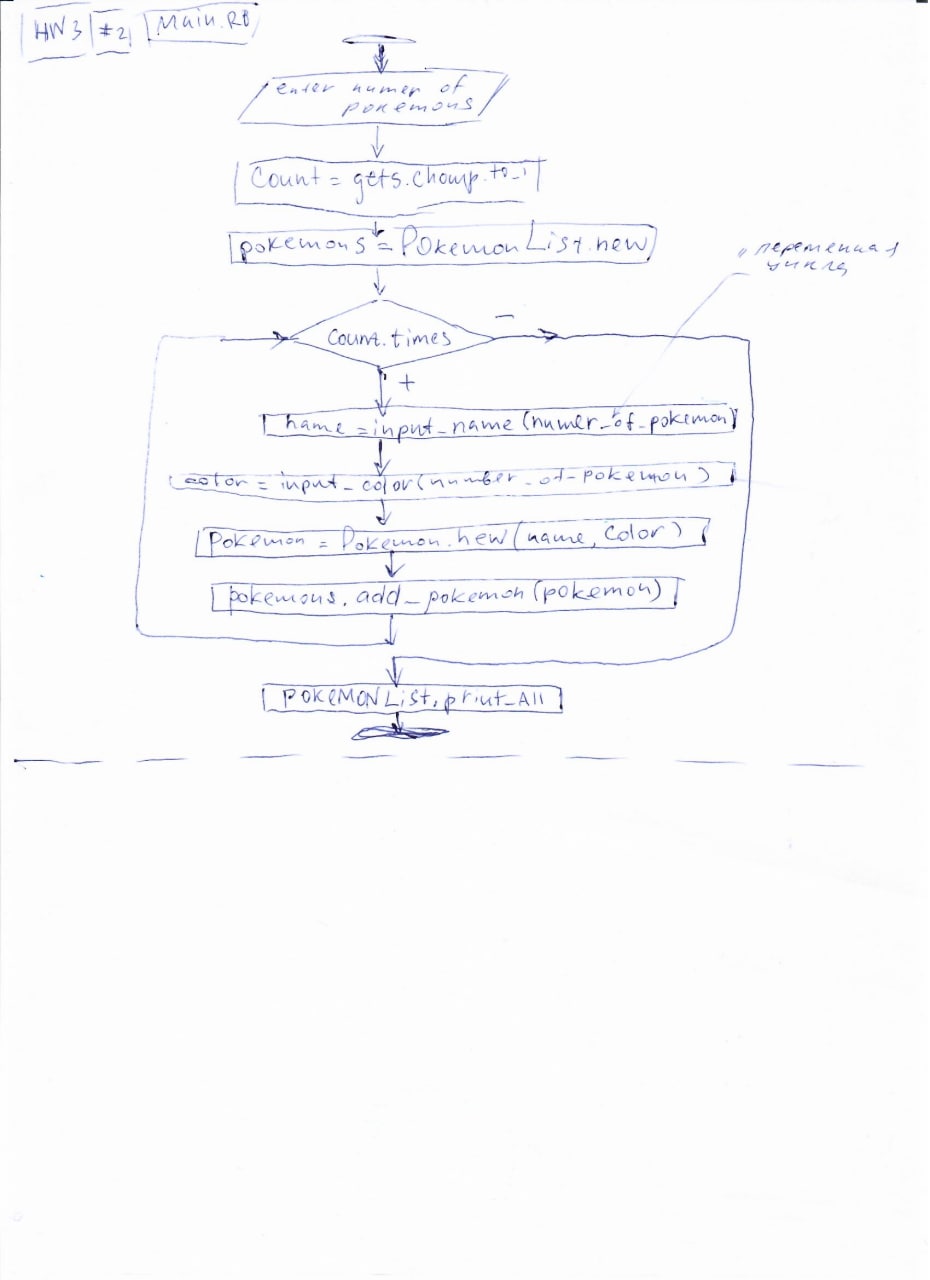 HW3 #2 Main.RB
enter numer of
pokemons
Count = gets.chomp.to_i
pokemons = PokemonList.new
"переменная
цикла
Count.times
−
+
name = input_name (numer_of_pokemon)
color = input_color (number_of-pokemon)
Pokemon = Pokemon.new (name, Color)
pokemons.add_pokemon (pokemon)
POKEMONList.print_All